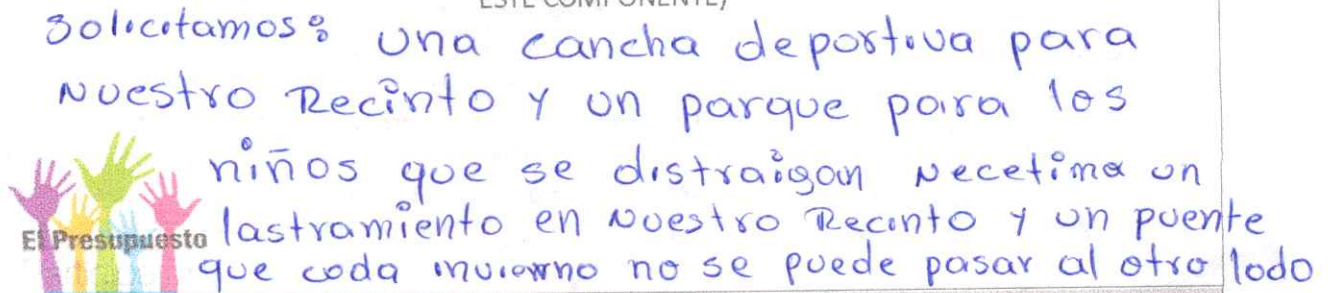 ESTE COMPONENTE)
Solicitamos: una cancha deportiva para
Nuestro Recinto y un parque para los
niños que se distraigan Necetima un
El Presupuesto lastramiento en Nuestro Recinto y un puente
que cada invierno no se puede pasar al otro lodo